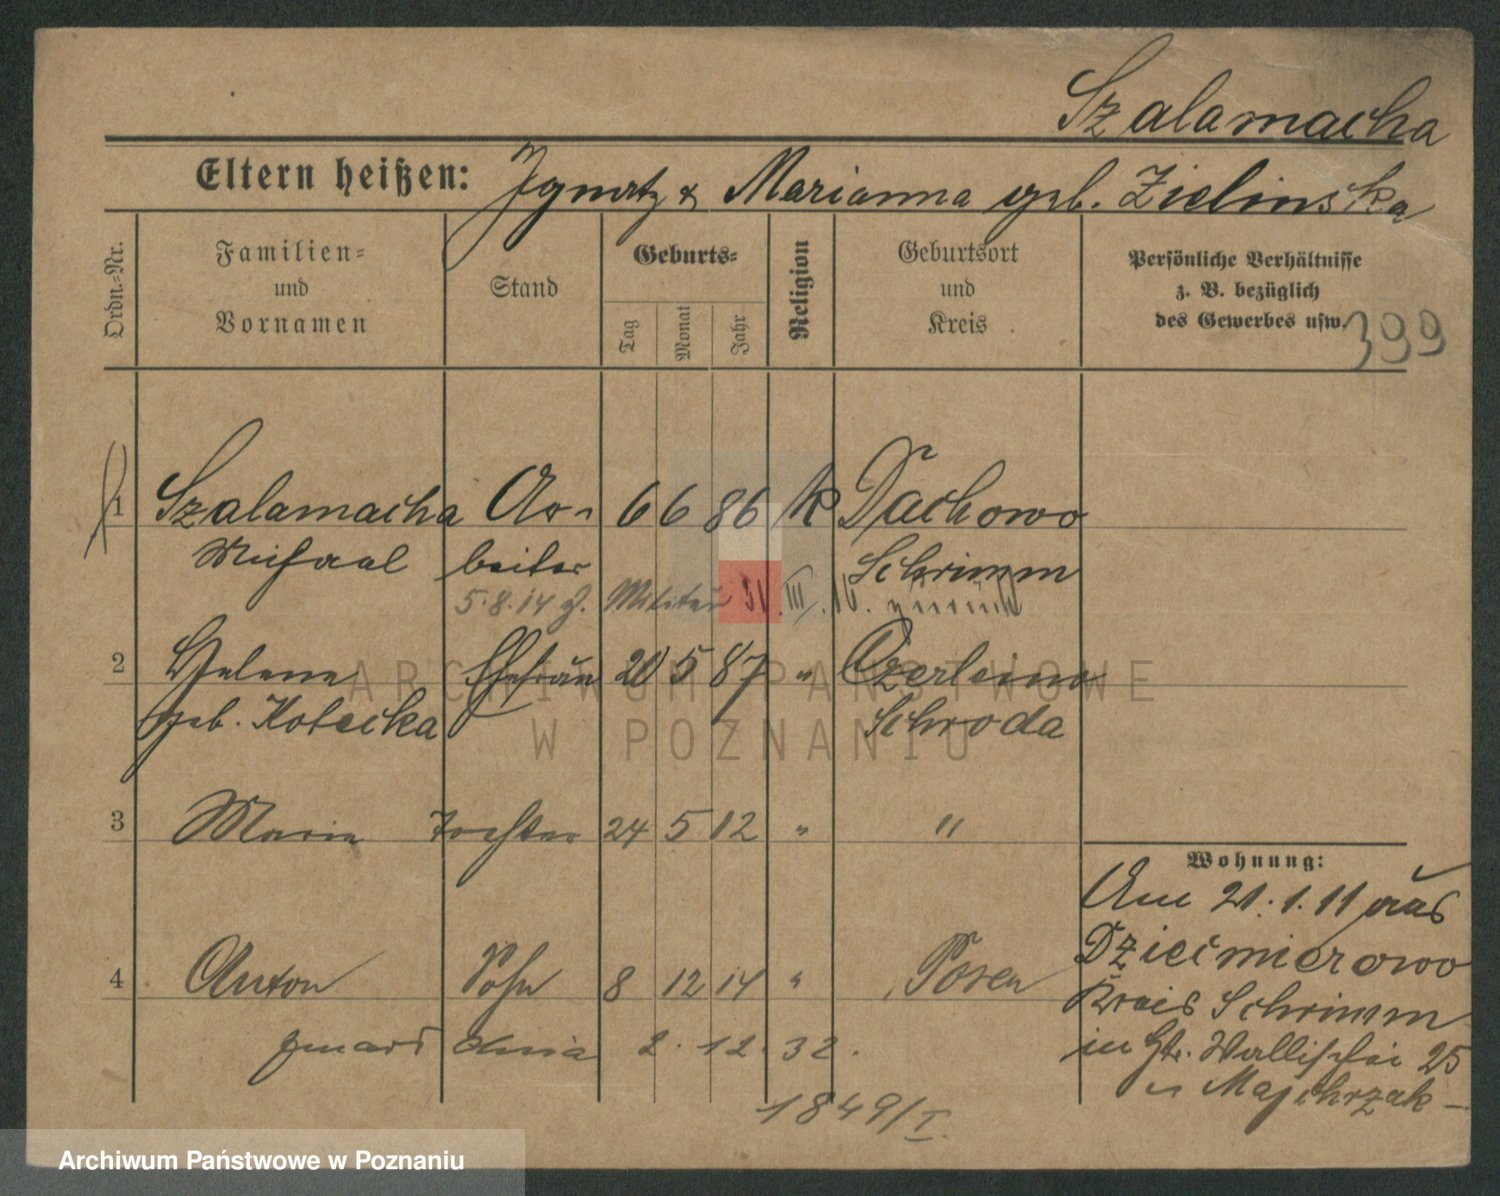 Szalamacha
Eltern heißen: Ignatz & Marianna geb. Zielinska
Ordn.-Nr.
Familien- und Vornamen
Stand
Geburts-
Tag
Monat
Jahr
Religion
Geburtsort und Kreis
Persönliche Verhältnisse
z. B. bezüglich
des Gewerbes usw.
399
1 Szalamacha Ar- 6 6 86 k Dachowo
Michael beiter Schrimm
5.8.14 z. Militär IV. III. 16. zurück
2 Helene Ehefrau 20 5 87 " Czerleino
geb. Kotecka Schroda
3 Marie Tochter 24 5 12 " "
4 Anton Sohn 8 12 14 " Posen
zmarł dnia 2. 12. 32.
1849/I.
Wohnung:
Am 21.1.11 aus
Dziećmierowo
Kreis Schrimm
in Gr. Wallischei 25
Majchrzak
ARCHIWUM PAŃSTWOWE
W POZNANIU
Archiwum Państwowe w Poznaniu